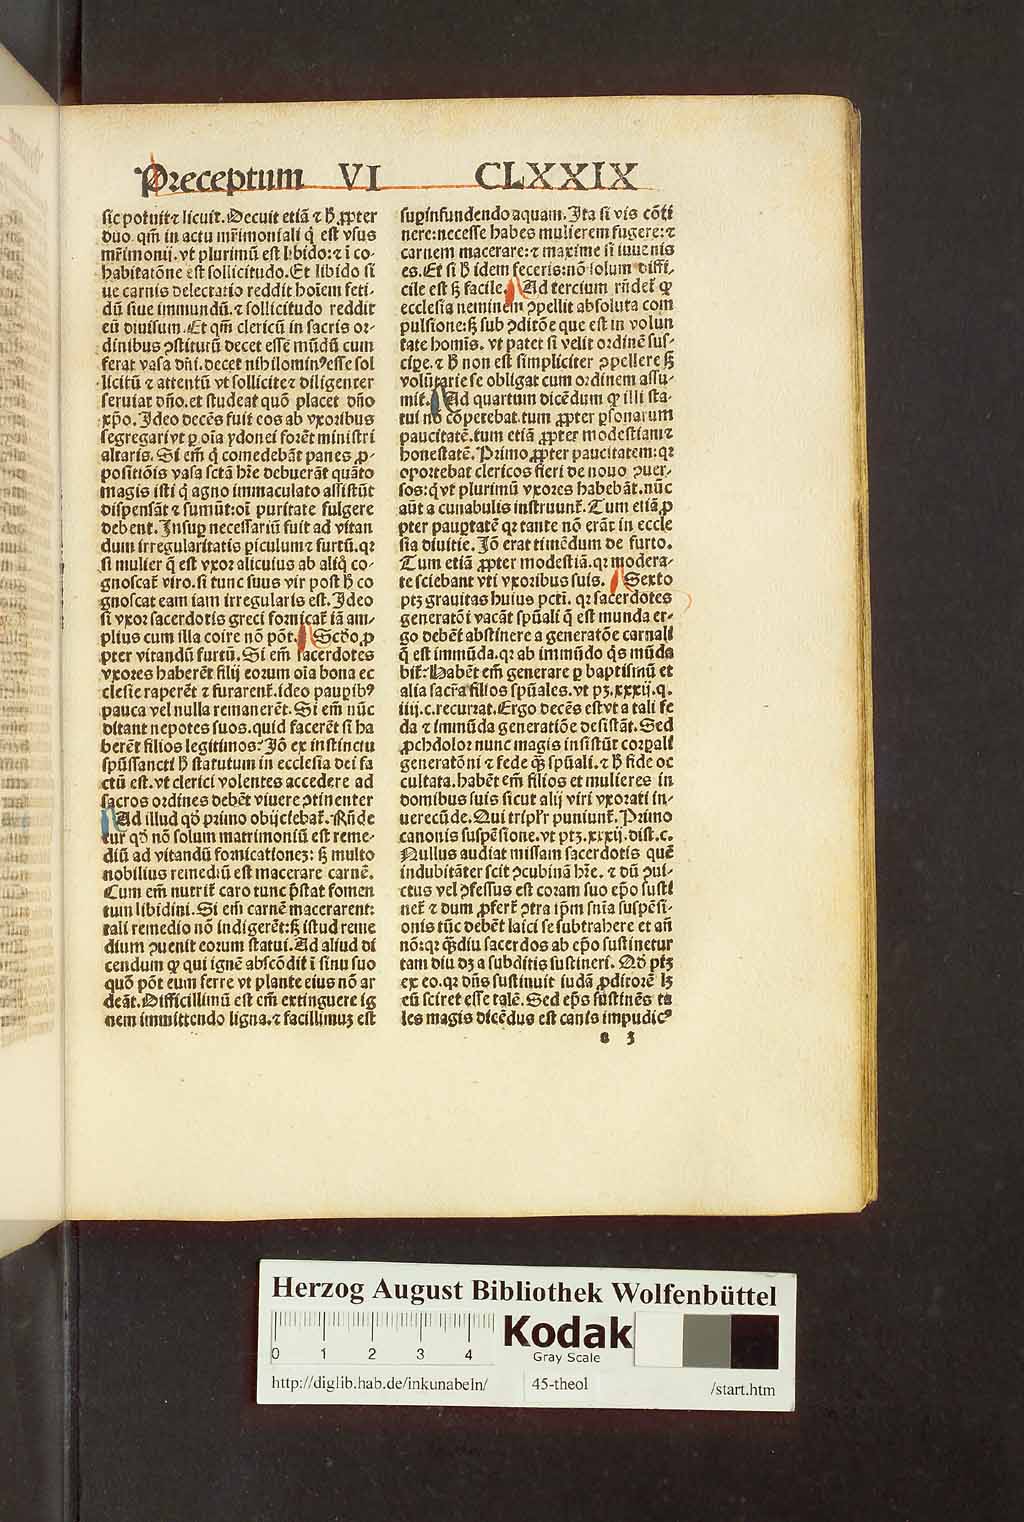 Preceptum VI CLXXIX
sic potuit ⁊ licuit. Decuit etiã ⁊ ħ ꝓpter
duo. qm̃ in actu mr̃imoniali q̇ est vsus
mr̃imonij. vt plurimũ est libido: ⁊ ĩ co-
habitatõne est sollicitudo. Et libido si
ue carnis delectatio reddit hoĩem feti-
dũ siue immundũ. ⁊ sollicitudo reddit
eũ diuisum. Et qm̃ clericũ in sacris or-
dinibus ꝯstitutũ decet esse mũdũ cum
ferat vasa dñi. decet nihilominꝰ esse sol
licitũ ⁊ attentũ vt sollicite ⁊ diligenter
seruiat dño. et studeat quõ placet dño
xp̃o. Ideo decẽs fuit eos ab vxoribus
segregari vt ꝑ oĩa ydonei forẽt ministri
altaris. Si em̃ q̇ comedebãt panes ꝓ-
positiõis vasa sctã hr̃e debuerãt quãto
magis isti q̇ agno immaculato assistũt
dispensãt ⁊ sumũt: oĩ puritate fulgere
debent. Insuꝑ necessariũ fuit ad vitan
dum irregularitatis ꝑiculum ⁊ furtũ. qꝛ
si mulier q̃ est vxor alicuius ab aliq̊ co-
gnoscat̃ viro. si tunc suus vir post ħ co
gnoscat eam iam irregularis est. Ideo
si vxor sacerdotis greci fornicat̃ iã am-
plius cum illa coire nõ põt. Scđo. ꝓ
pter vitandũ furtũ. Si em̃ sacerdotes
vxores haberẽt filij eorum oĩa bona ec
clesie raperẽt ⁊ furarent̃. ideo pauꝑibꝰ
pauca vel nulla remanerẽt. Si em̃ nũc
ditant nepotes suos. quid facerẽt si ha
berẽt filios legitimos? Iõ ex instinctu
spũssancti ħ statutum in ecclesia dei fa
ctũ est. vt clerici volentes accedere ad
sacros ordines debẽt viuere ꝯtinenter
Ad illud qđ primo obijciebat̃. Rñde
tur qđ nõ solum matrimoniũ est reme-
diũ ad vitandũ fornicationeꝫ: sꝫ multo
nobilius remediũ est macerare carnẽ.
Cum em̃ nutrit̃ caro tunc p̃stat fomen
tum libidini. Si em̃ carnẽ macerarent:
tali remedio nõ indigerẽt: sꝫ istud reme
dium ꝯuenit eorum statui. Ad aliud di
cendum ꝙ qui ignẽ abscõdit ĩ sinu suo
quõ põt eum ferre vt plante eius nõ ar
deãt. Difficillimũ est em̃ extinguere ig
nem immittendo ligna. ⁊ facillimuꝫ est
suꝑinfundendo aquam. Ita si vis cõti
nere: necesse habes mulierem fugere: ⁊
carnem macerare: ⁊ maxime si iuuenis
es. Et si ħ idem feceris: nõ solum diffi-
cile est sꝫ facile. Ad tercium rñdet̃ ꝙ
ecclesia neminem ꝯpellit absoluta com
pulsione: sꝫ sub ꝯditõe que est in volun
tate homĩs. vt patet si velit ordinẽ sus-
cipe. ⁊ ħ non est simpliciter ꝯpellere sꝫ
volũtarie se obligat cum ordinem assu-
mit̃. Ad quartum dicẽdum ꝙ illi sta-
tui nõ cõperebat. tum ꝓpter ꝑsonarum
paucitatẽ. tum etiã ꝓpter modestiam ⁊
honestatẽ. Primo ꝓpter paucitatem: qꝛ
oportebat clericos fieri de nouo ꝯuer-
sos: q̇ vt plurimũ vxores habebãt. nũc
aũt a cunabulis instruunt̃. Tum etiã ꝓ
pter pauꝑtatẽ qꝛ tante nõ erãt in eccle
sia diuitie. Iõ erat timẽdum de furto.
Tum etiã ꝓpter modestiã. qꝛ modera-
te sciebant vti vxoribus suis. Sexto
ptꝫ grauitas huius pcti. qꝛ sacerdotes
generatõi vacãt spũali q̃ est munda er-
go debẽt abstinere a generatõe carnali
q̃ est immũda. qꝛ ab immũdo q̇s mũda
bit̃? Habẽt em̃ generare ꝑ baptismũ et
alia sacr̃a filios spũales. vt pꝫ. xxxij. q.
iiij. c. recurrat. Ergo decẽs est vt a tali fe
da ⁊ immũda generatiõe desistãt. Sed
ꝓchdolor nunc magis insistũt corꝑali
generatõni ⁊ fede q̃ꝫ spũali. ⁊ ħ fide oc
cultata. habẽt em̃ filios et mulieres in
domibus suis sicut alij viri vxorati in-
uerecũde. Qui triplr̃ puniunt̃. Primo
canonis suspẽsione. vt ptꝫ. xxxij. dist. c.
Nullus audiat missam sacerdotis quẽ
indubitãter scit ꝯcubinã hr̃e. ⁊ dũ ꝯui-
ctus vel ꝯfessus est coram suo ep̃o susti
net̃ ⁊ dum ꝓfert̃ ꝯtra ip̃m sñia suspẽsi-
onis tũc debẽt laici se subtrahere et añ
nõ: qꝛ q̃ꝫdiu sacerdos ab ep̃o sustinetur
tam diu dꝫ a subditis sustineri. Qđ ptꝫ
ex eo. qꝛ dñs sustinuit iudã ꝓditorẽ lꝫ
eũ sciret esse talẽ. Sed ep̃s sustinẽs ta
les magis dicẽdus est canis impudicꝰ
3
Herzog August Bibliothek Wolfenbüttel
0 1 2 3 4
Kodak
Gray Scale
http://diglib.hab.de/inkunabeln/ 45-theol /start.htm